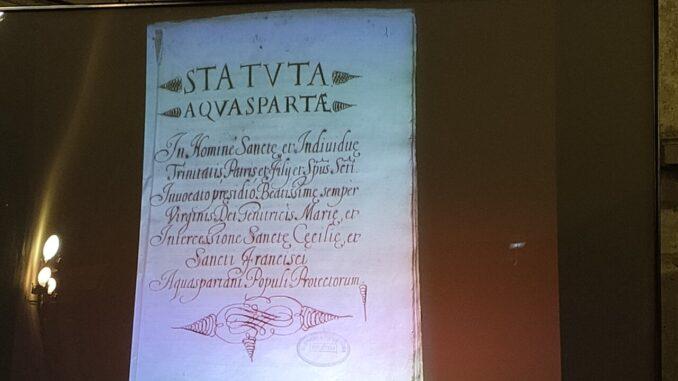 STATVTA
AQVASPARTÆ
In Nomine Sancte, et Indiuidue
Trinitatis, Patris et Filij et Spus Scti
Inuocato presidio, Beatissime semper
Virginis Dei Genitricis Marie, et
Intercessione Sancte Cecilie, et
Sancti Francisci
Aquaspartani Populi Protectorum